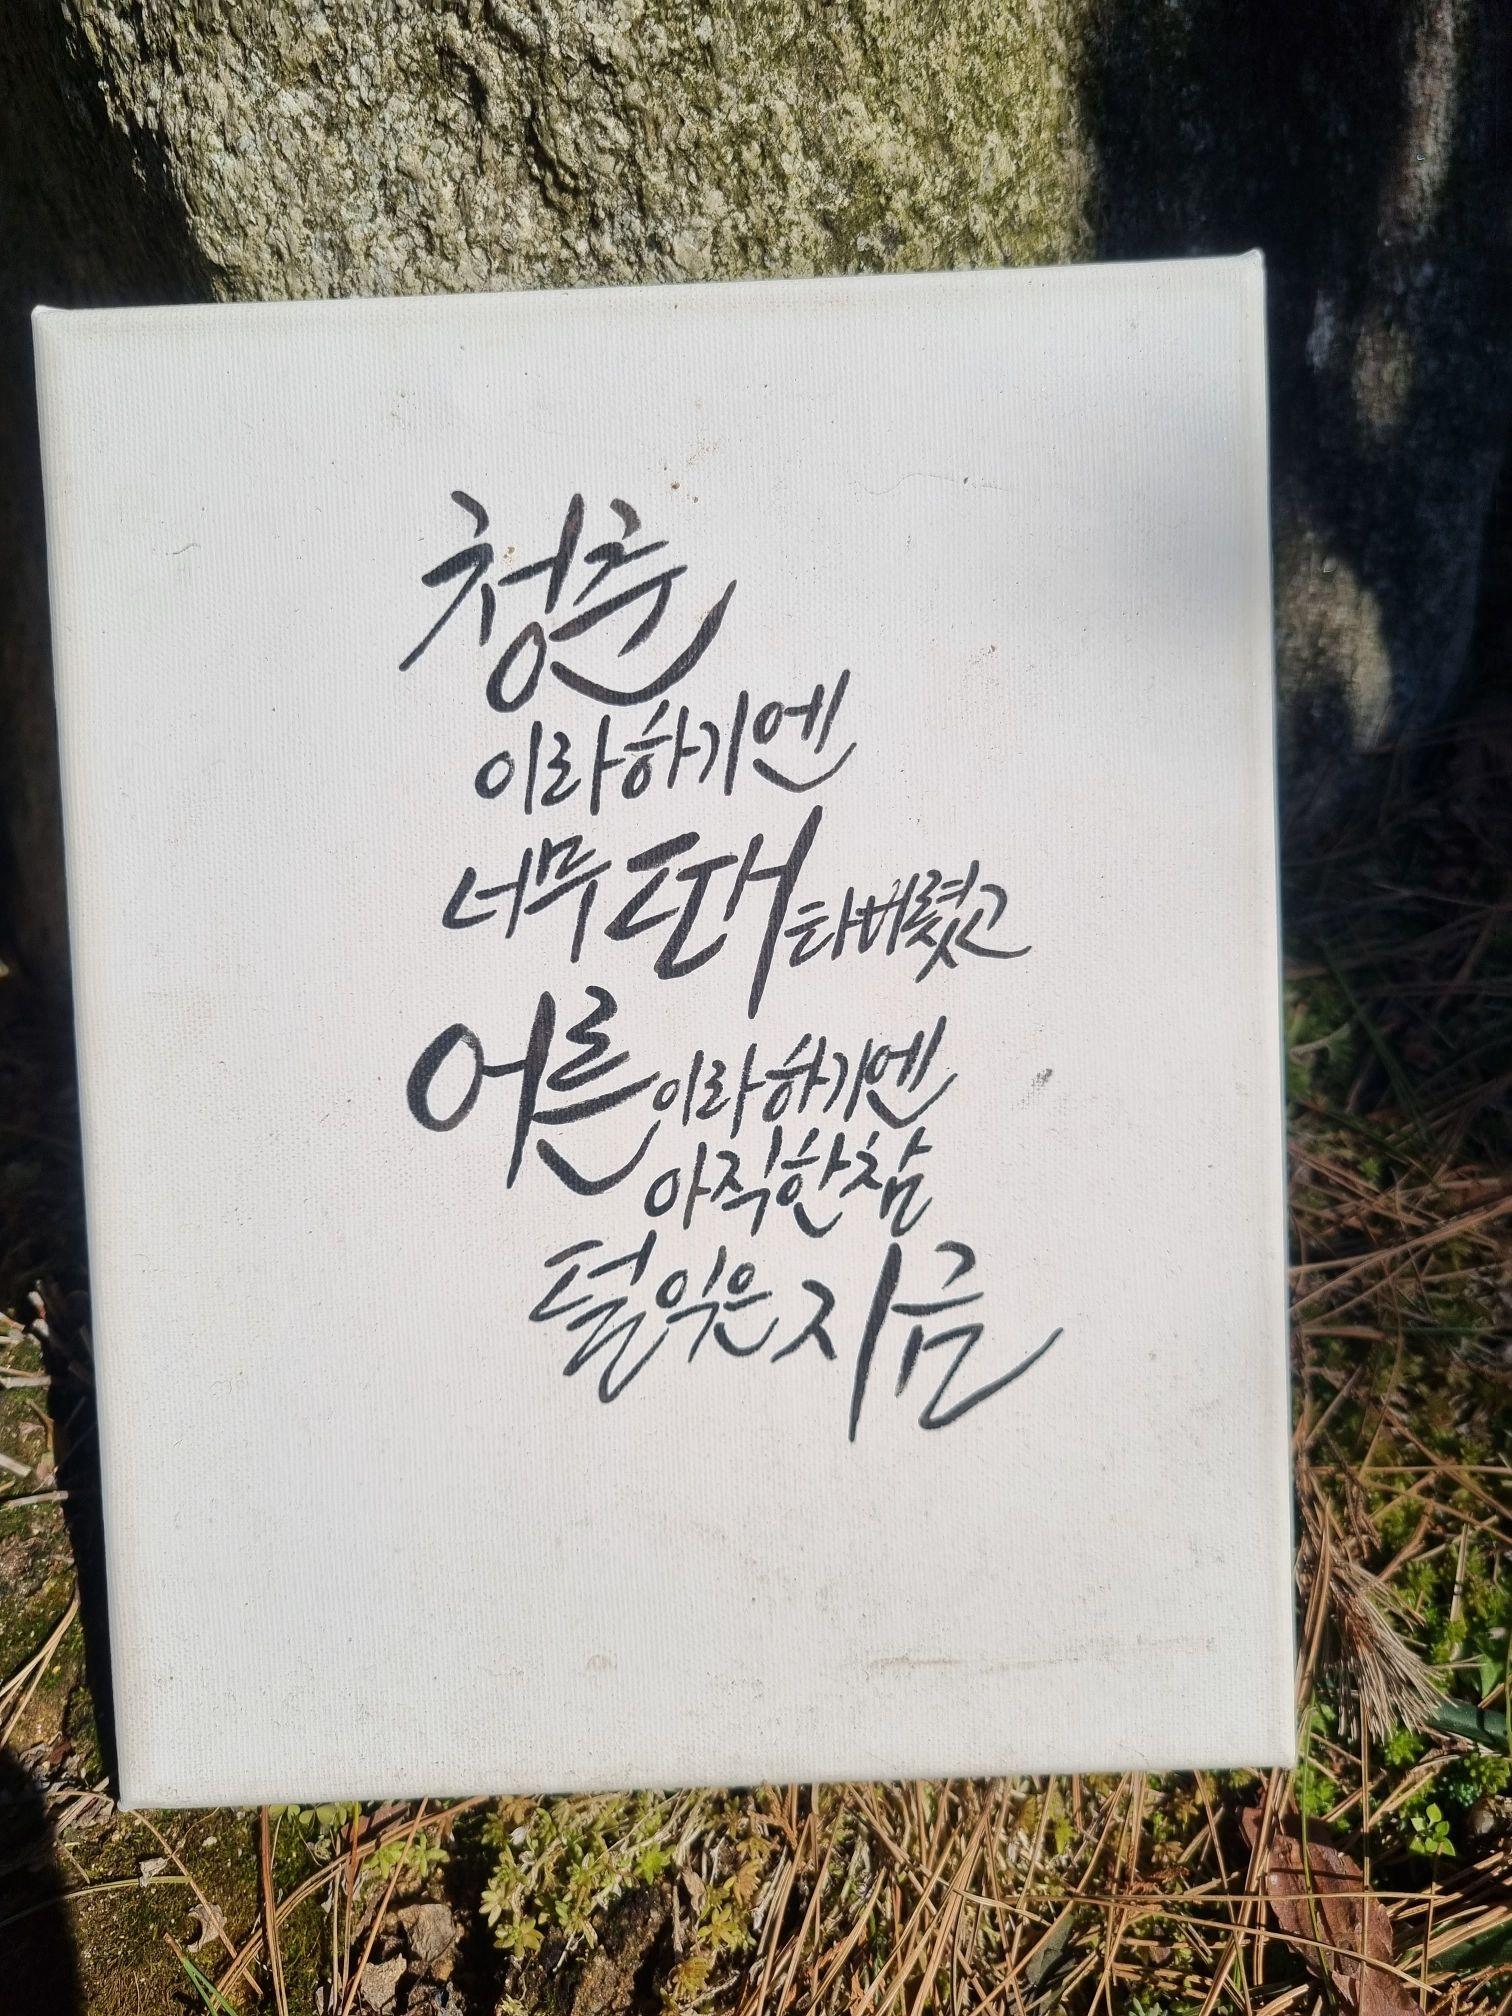 청춘
이라하기엔
너무 때 타버렸고
어른이라하기엔
아직한참
덜익은 지금